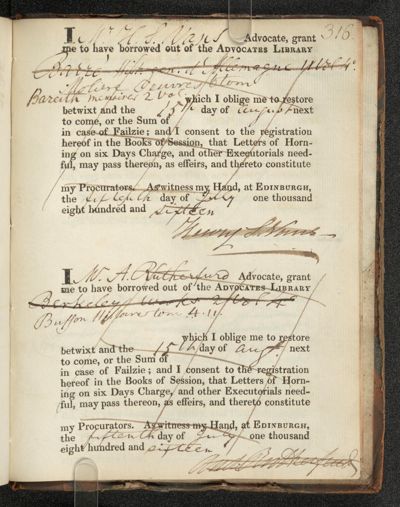 316
I Mr H. S. Vans Advocate, grant
me to have borrowed out of the ADVOCATES LIBRARY
Barré Hist gen. d'Allemagne 11 vol 4°.
Moliere Oeuvres tom
Bareith memoires 2 vol which I oblige me to restore
betwixt and the 15th day of August next
to come, or the Sum of
in case of Failzie; and I consent to the registration
hereof in the Books of Session, that Letters of Horn-
ing on six Days Charge, and other Executorials need-
ful, may pass thereon, as effeirs, and thereto constitute
my Procurators. As witness my Hand, at EDINBURGH,
the fifteenth day of July one thousand
eight hundred and sixteen
Henry S. Vans
I Mr. A. Rutherfurd Advocate, grant
me to have borrowed out of the ADVOCATES LIBRARY
Berkeley's works 2 vol 4°
Buffon Histoire tom 4-11.
which I oblige me to restore
betwixt and the 15th day of augt. next
to come, or the Sum of
in case of Failzie; and I consent to the registration
hereof in the Books of Session, that Letters of Horn-
ing on six Days Charge, and other Executorials need-
ful, may pass thereon, as effeirs, and thereto constitute
my Procurators. As witness my Hand, at EDINBURGH,
the fifteenth day of July one thousand
eight hundred and sixteen
Rutherfurd